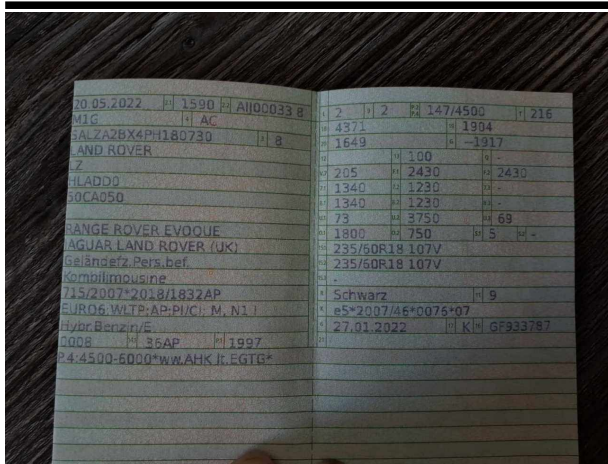 20.05.2022 2.1 1590 2.2 AIJ00033 8
M1G 4 AC
SALZA2BX4PH180730 3 8
LAND ROVER
LZ
HLADD0
50CA050
RANGE ROVER EVOQUE
JAGUAR LAND ROVER (UK)
Geländefz.Pers.bef.
Kombilimousine
715/2007*2018/1832AP
EURO6;WLTP;AP;PI/CI; M, N1 I
Hybr.Benzin/E
0008 36AP 1997
P.4:4500-6000*ww.AHK lt.EGTG*
2 3 2 147/4500 T 216
4371 1904
1649 —1917
100 -
205 2430 2430
1340 1230 -
1340 1230 -
73 3750 69
1800 750 5 -
235/60R18 107V
235/60R18 107V
-
Schwarz 9
e5*2007/46*0076*07
27.01.2022 K GF933787